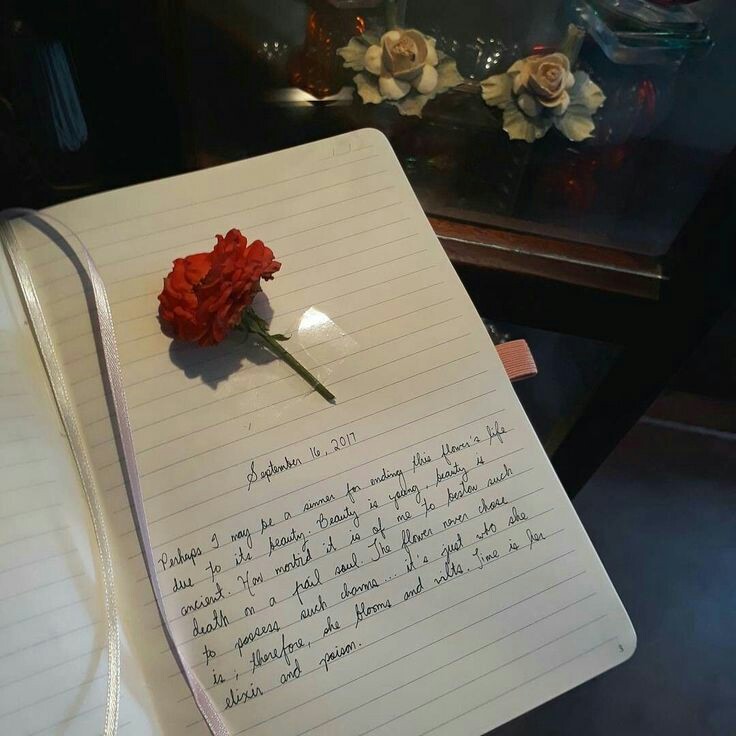 September 16, 2017
Perhaps I may be a sinner for ending this flower's life
due to its beauty. Beauty is young, beauty is
ancient. How morbid it is of me to bestow such
death on a frail soul. The flower never chose
to possess such charms... it's just who she
is; therefore, she blooms and wilts. Time is her
elixir and poison.
3